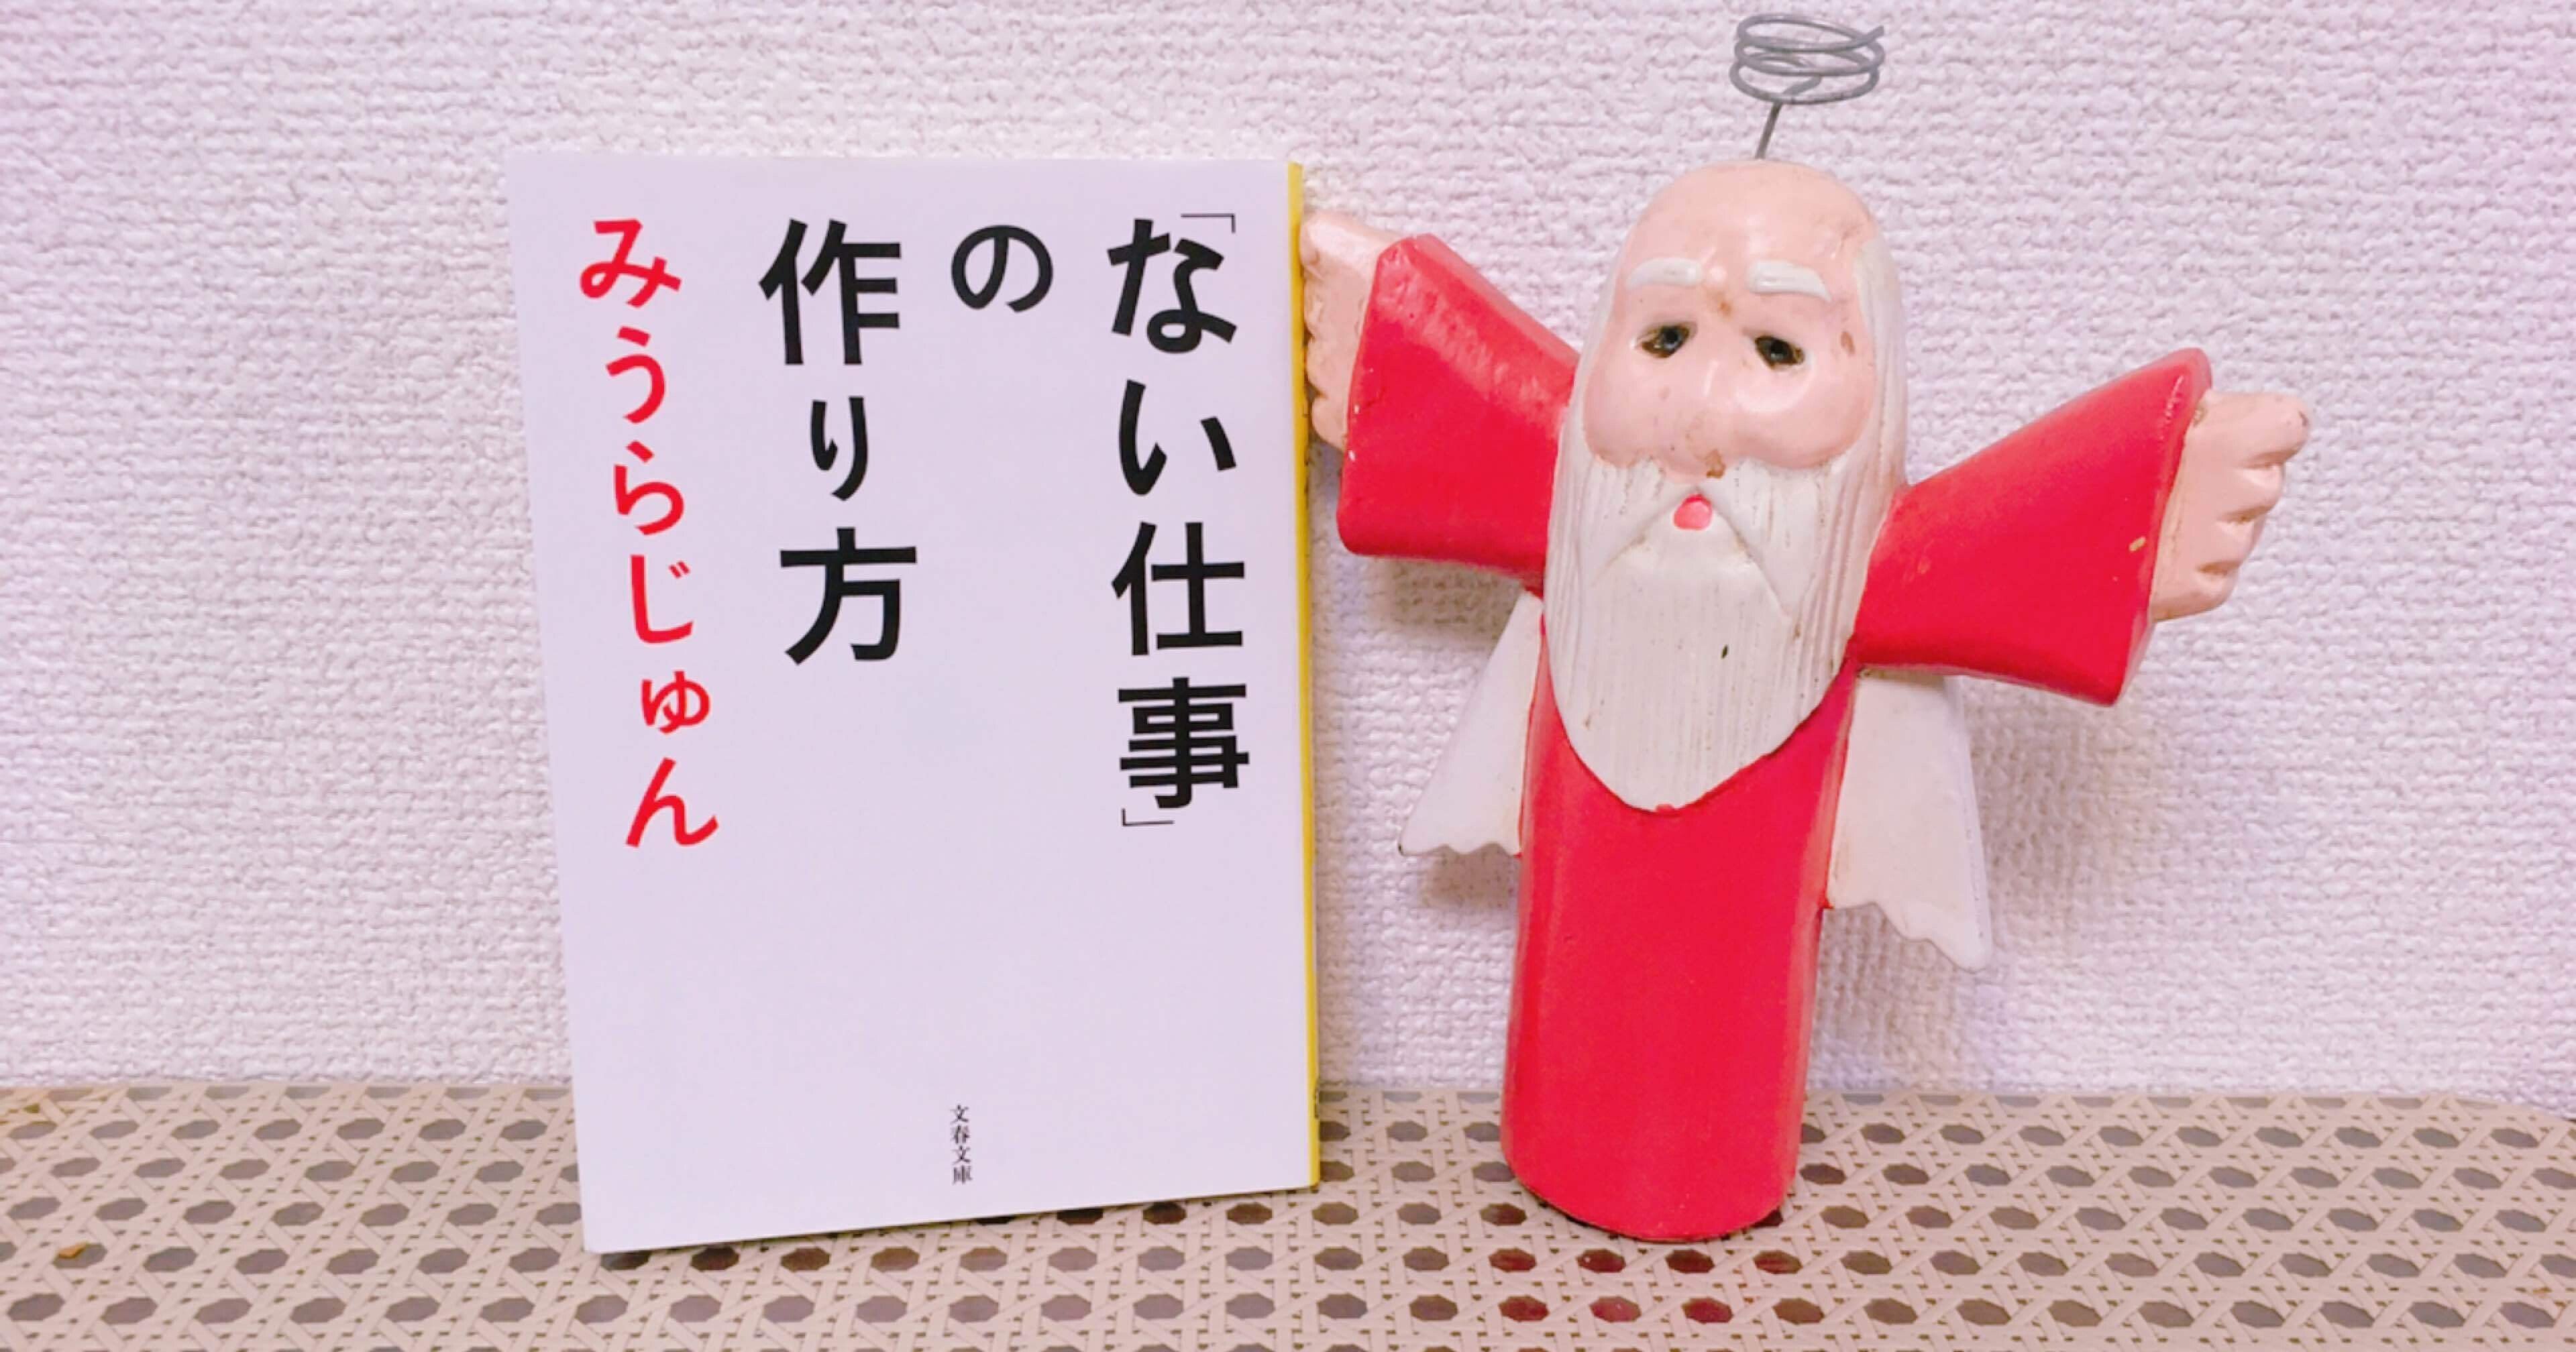 「ない仕事」
の
作り方
みうらじゅん
文春文庫